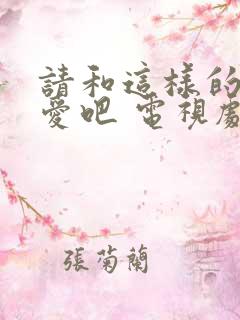 請和這樣的
愛吧 電視劇
張菊蘭